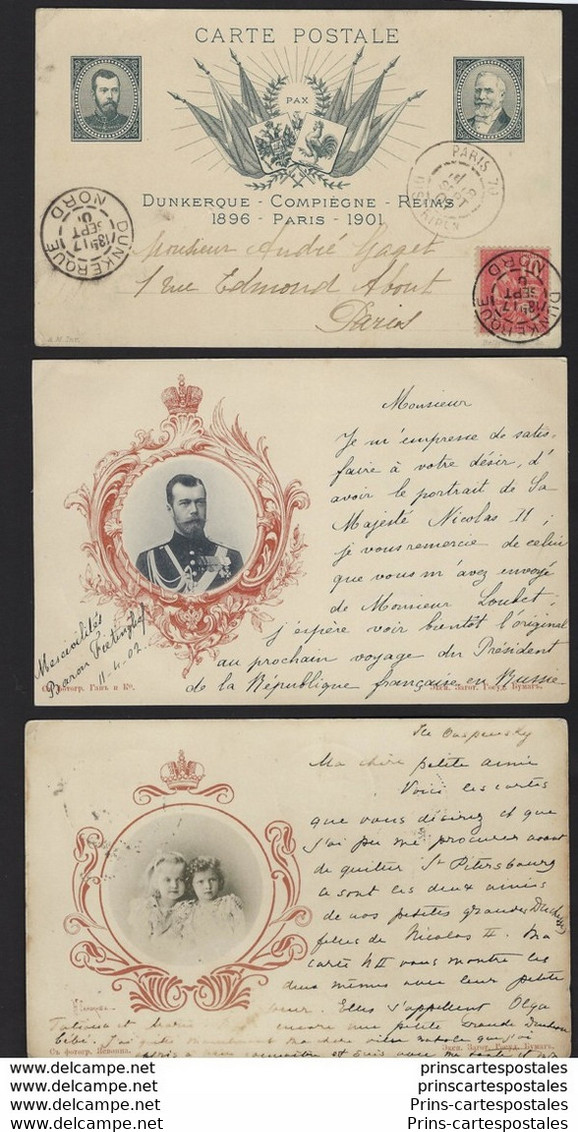 CARTE POSTALE
PAX
DUNKERQUE - COMPIÈGNE - REIMS
1896 - PARIS - 1901
PARIS 70
DUNKERQUE
NORD
18H 17
SEPT
01
DUNKERQUE
NORD
18H 17
SEPT
Monsieur André Gaget
1 rue Edmond About
Paris
Monsieur
Je m'empresse de satis-
faire à votre désir, d'
avoir le portrait de Sa
Majesté Nicolas II ;
je vous remercie de celui
que vous m'avez envoyé
de Monsieur Loubet ;
j'espère voir bientôt l'original
au prochain voyage du Président
de la République française en Russie
Mes civilités
Baron
11-4-02
Съ фотогр. Ганъ и Ко.
Эксп. Загот. Госуд. Бумагъ.
Ma chère petite amie
Voici les cartes
que vous désirez et que
j'ai pu me procurer avant
de quitter St Pétersbourg
ce sont les deux ainées
de nos petites grandes Duchesses
filles de Nicolas II. Ma
carte N II vous montre les
deux mêmes avec leur petite
sœur. Elles s'appellent Olga
Tatiana et Marie encore une petite Grande Duchesse
bébé. J'ai
Съ фотогр.
Эксп. Загот. Госуд. Бумагъ.
princartescartespostales
princartescartespostales
Prins-cartescartespostales
Prins-cartescartespostales